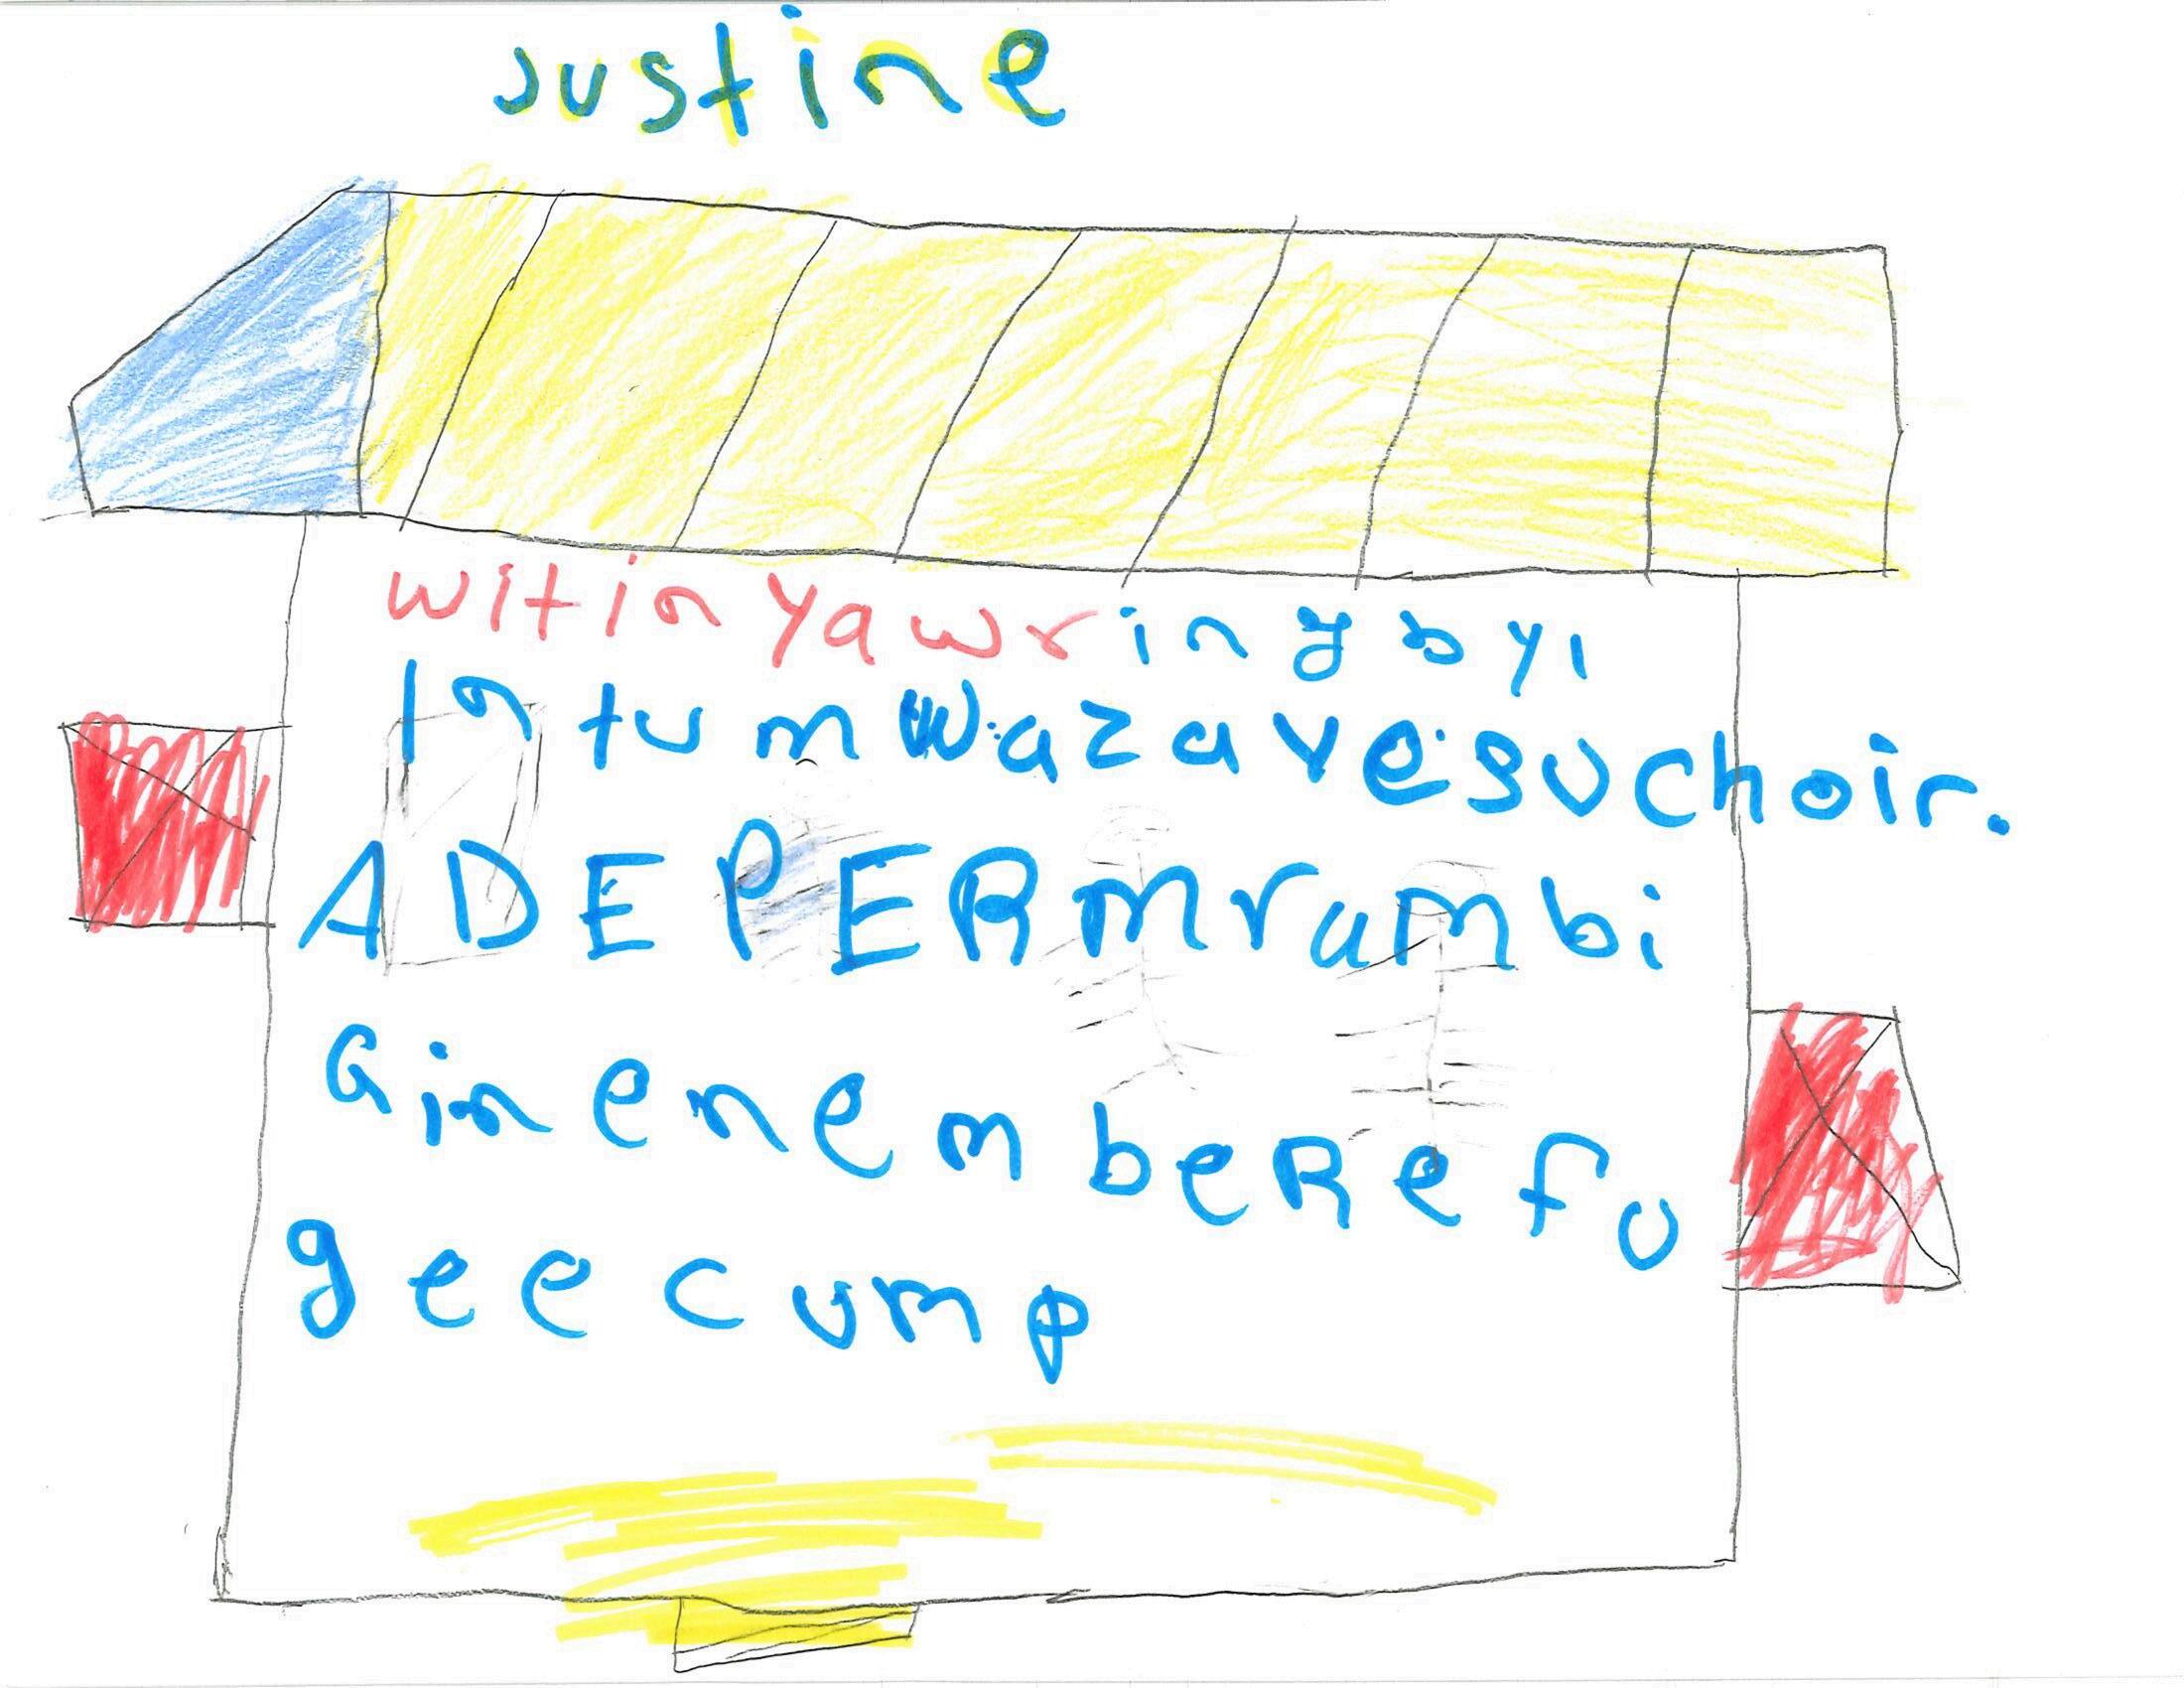 Justine
witinyawringbyi
IntumwazayesuchoiR.
ADEPERmrumbi
GinenembeRefu
geecump